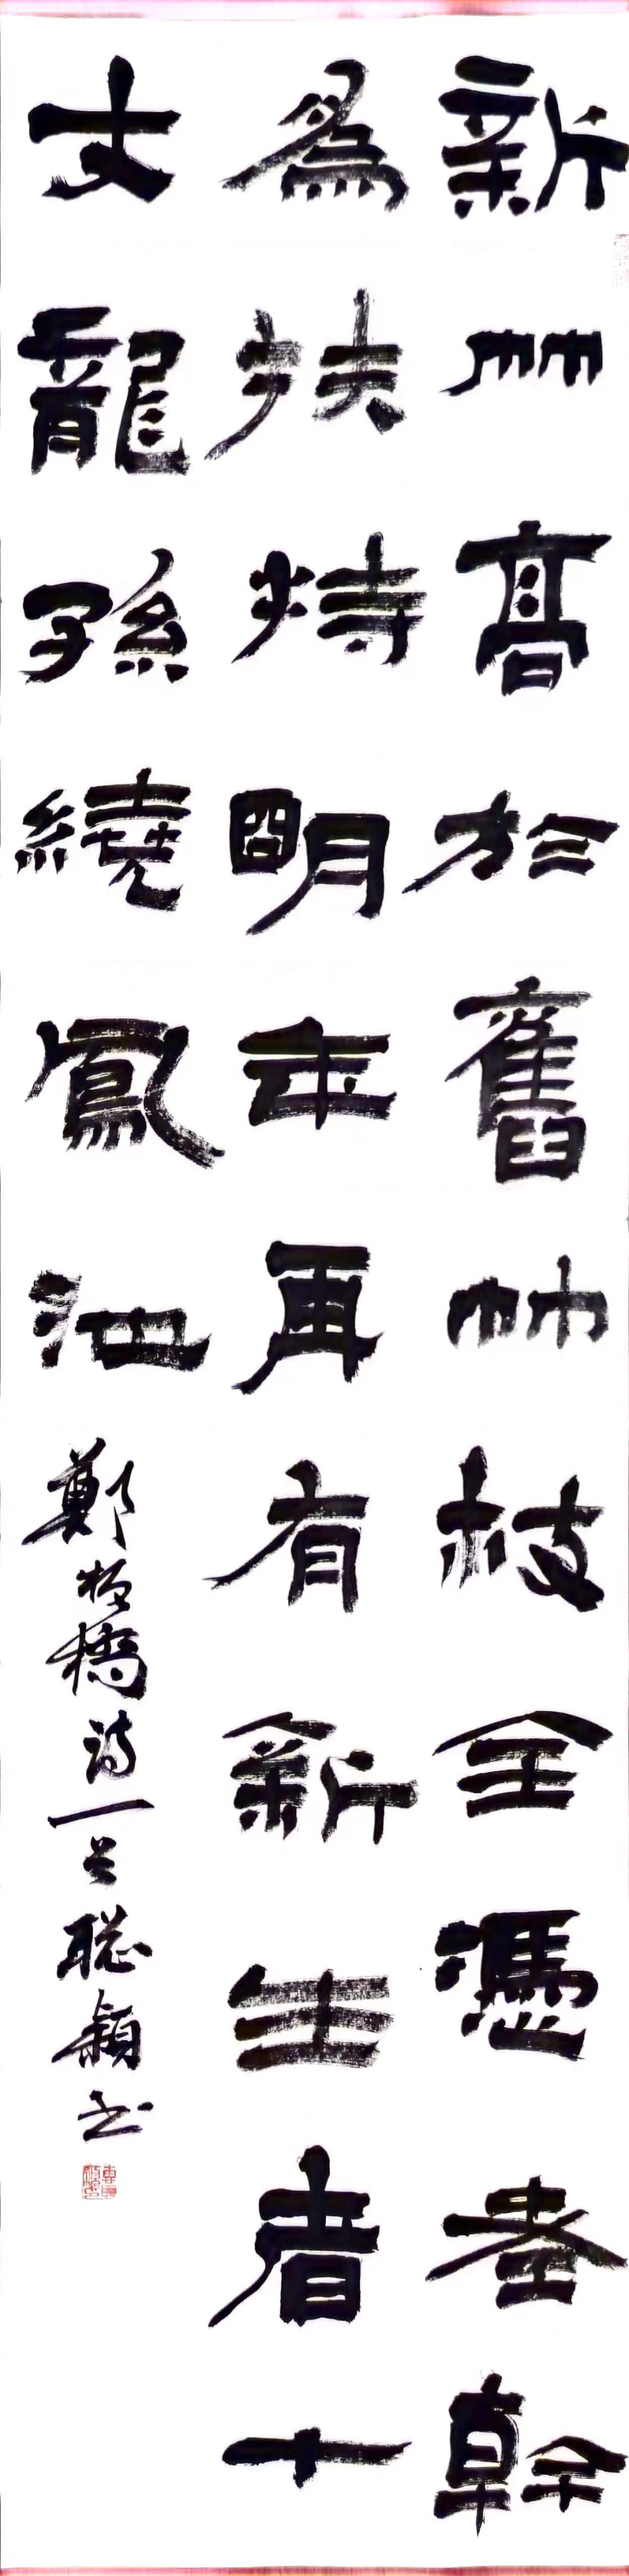 新竹高於舊竹枝全憑老幹
為扶持明年再有新生者十
丈龍孫繞鳳池
鄭板橋詩一首聰穎书